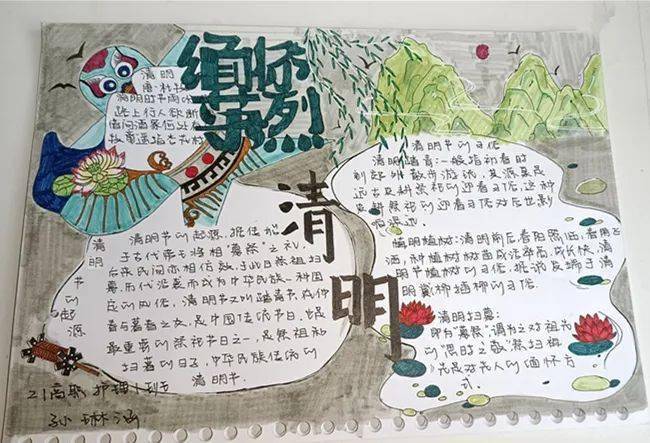 缅怀
英烈
清明
清明
唐·杜牧
清明时节雨纷
路上行人欲断
借问酒家何处有
牧童遥指杏花村
清明节的起源
清明节的起源,据传始
于古代帝王将相"墓祭"之礼,
后来民间亦相仿效,于此日祭祖扫
墓,历代沿袭而成为中华民族一种固
定的风俗,清明节又叫踏青节
是中国传统节日,也是
最重要的祭祀节日之一,是祭祖和
扫墓的日子,中华民族传统的
清明节
21高职护理1班
孙琳涵
清明节的习俗
清明踏青:一般指初春时
到郊外散步游玩,
远古农耕祭祀的迎春习俗,这种
农耕祭祀的迎春习俗对后世影
响深远.
清明植树:清明前后春阳照临,春雨飞
洒,种植树苗成活率高,成长快,清
明节植树的习俗,据说发端于清
明戴柳插柳的习俗.
清明扫墓:
即为"墓祭"谓之对祖先
的"思时之敬"祭扫祖
先是对先人的缅怀方
式.